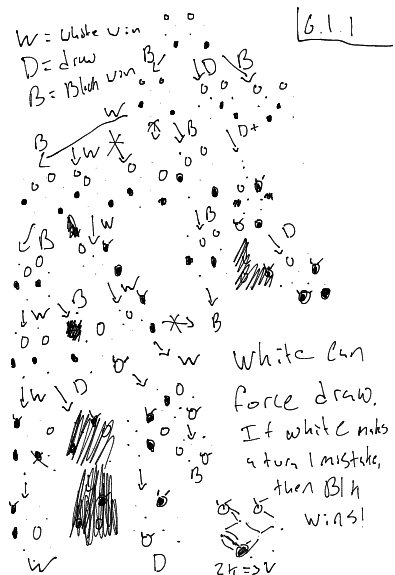 6.1.1
W = white win
D = draw
B = Black win
B
D
B
W
B
D+
B
W
B
W
B
D
W
B
W
B
W
W
D
B
W
D
White can
force draw.
If white makes
a turn 1 mistake,
then Blk
wins!
2K =>